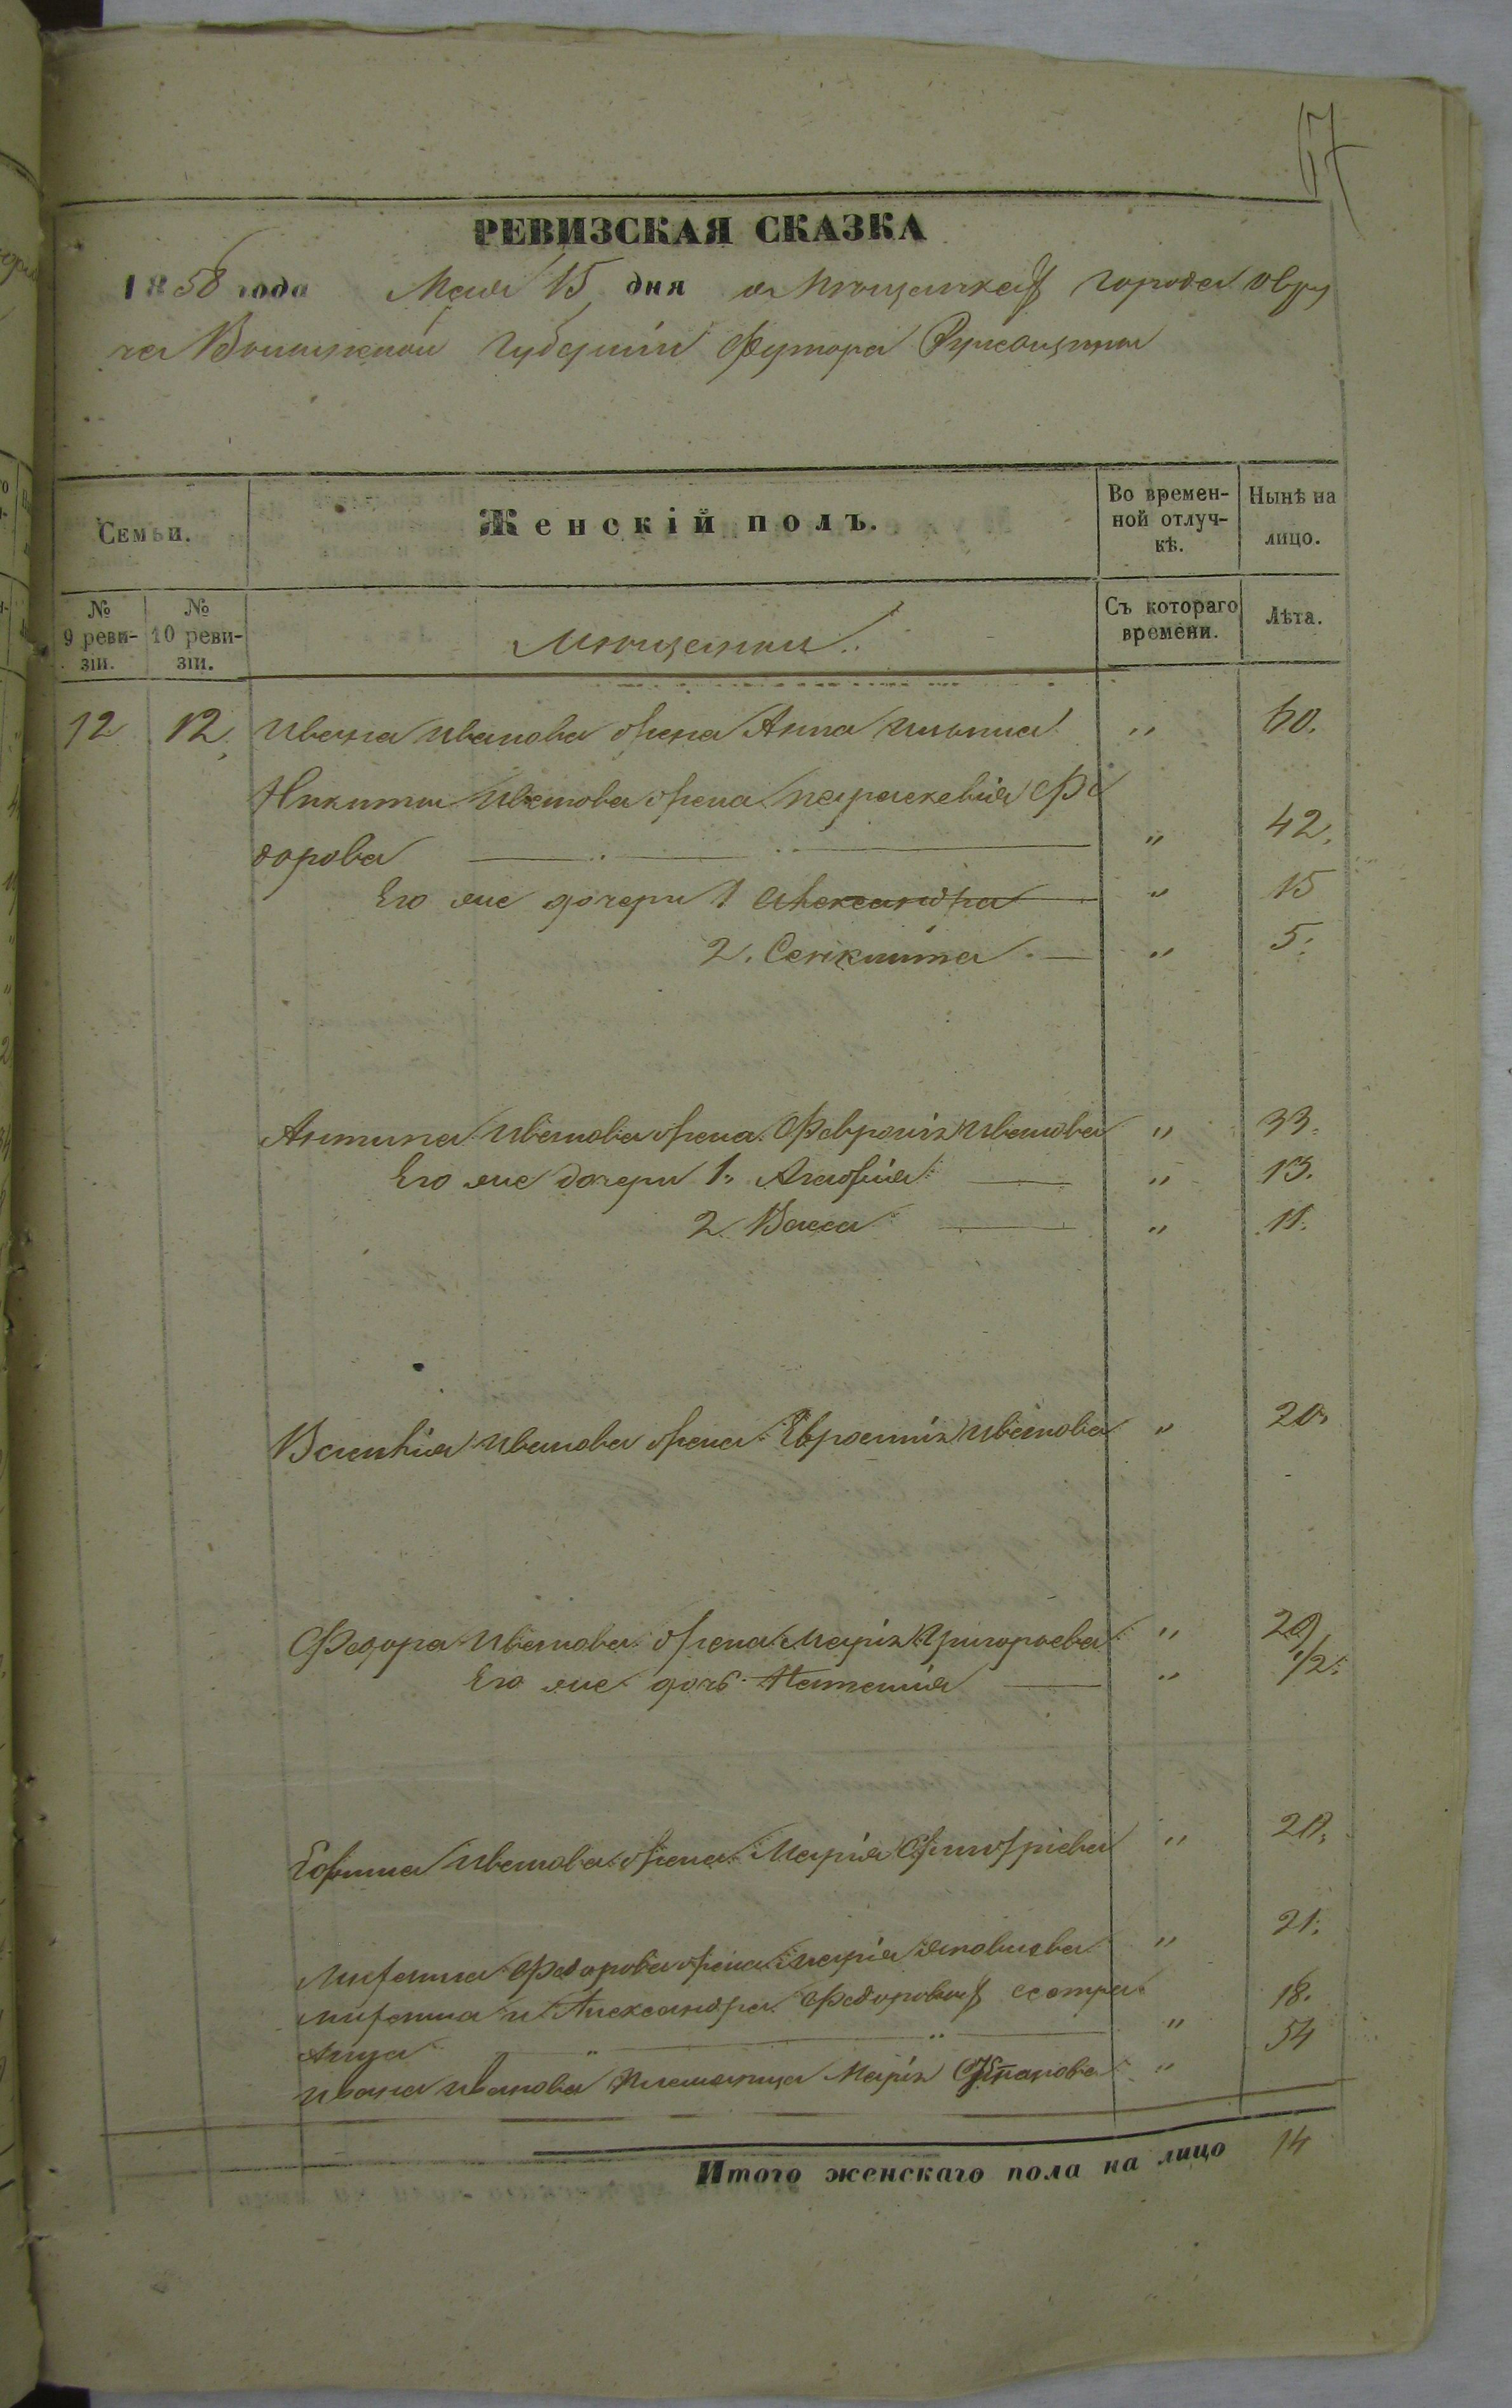 67
РЕВИЗСКАЯ СКАЗКА
1858 года Мая 15 дня о Мѣщанкахъ города Овру
ча Волынской Губерніи Футора
Семьи.
Женскій полъ.
Во времен-
ной отлуч-
кѣ.
Нынѣ на
лицо.
№
9 реви-
зіи.
№
10 реви-
зіи.
Мѣщанки.
Съ котораго
времени.
Лѣта.
12 12. Ивана Иванова жена Анна Ильина " 60.
Никиты Иванова жена Параскевія Фе
дорова " 42.
Его же дочери 1 Александра " 15
2. Секлита " 5.
Антипа Иванова жена Февронія Иванова " 33.
Его же дочери 1. Агафія " 13.
2. Васса " 11.
Василія Иванова жена Ефросинія Иванова " 20.
Федора Иванова жена Марія Григорьева " 20
Его же дочь Наталія " 1/2.
Ефима Иванова жена Марія " 20.
Федорова жена Марія " 21.
и Александра Федоровыхъ сестра
Анна " 18.
Ивана Иванова племянница Марія Степанова " 54
Итого женскаго пола на лицо 14